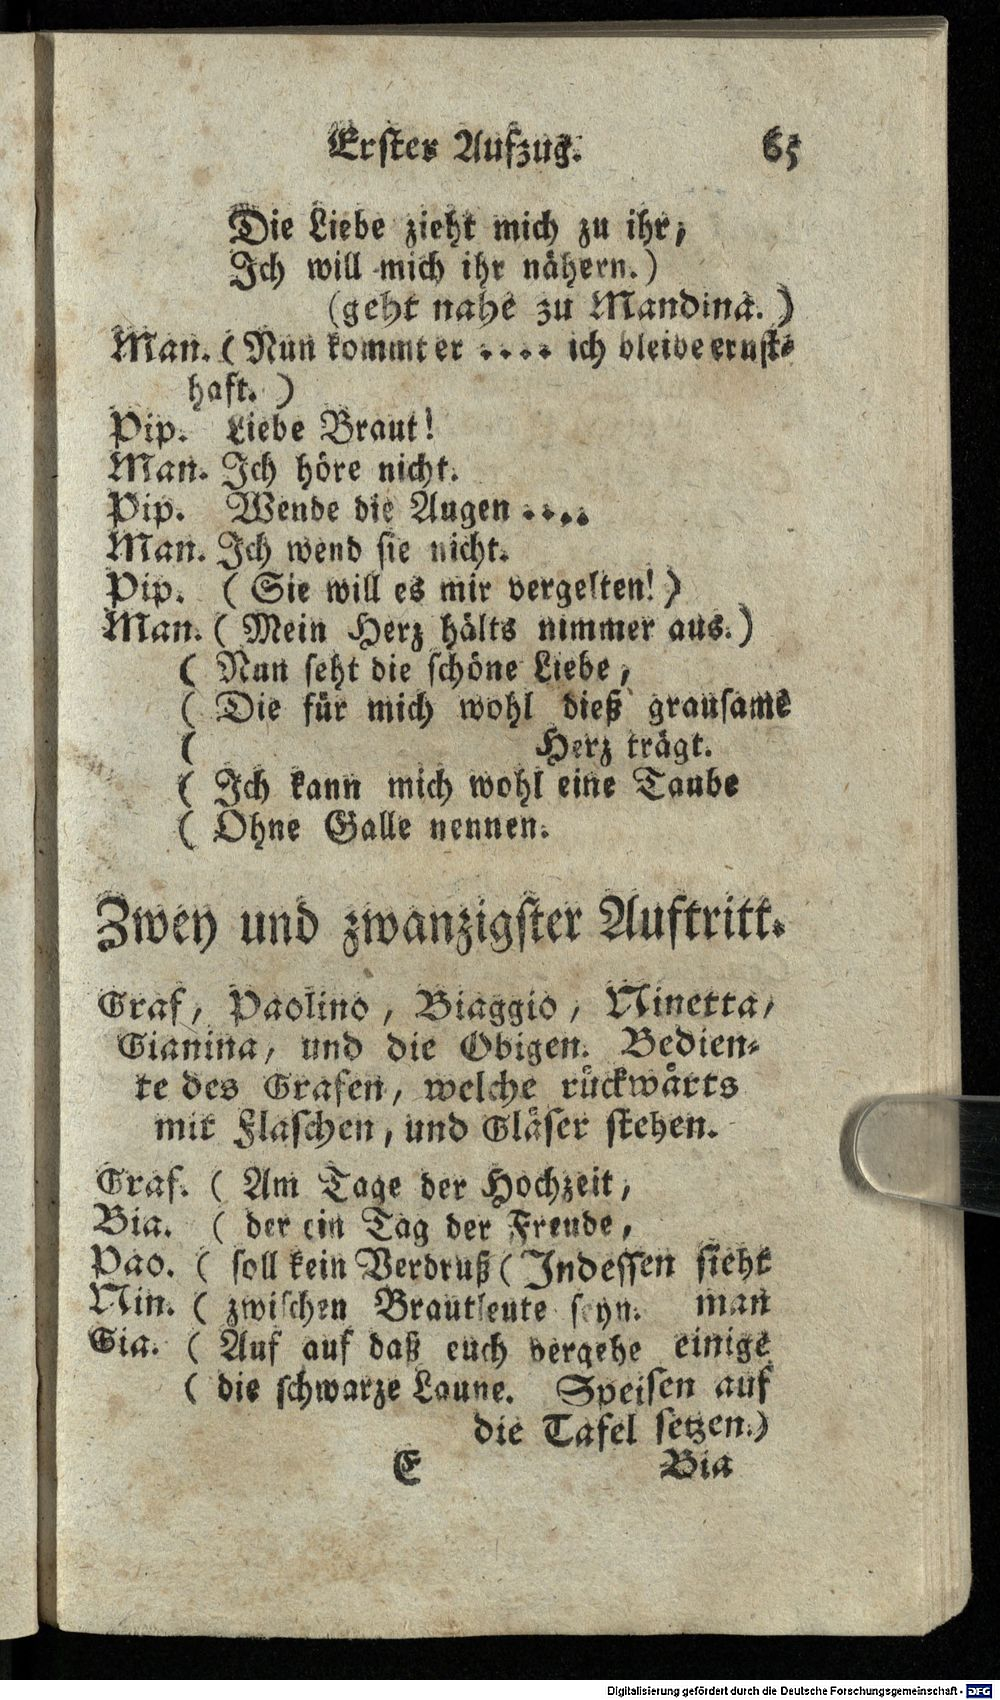 Erster Aufzug. 65
Die Liebe zieht mich zu ihr,
Ich will mich ihr nähern.)
(geht nahe zu Mandina.)
Man. (Nun kommt er .... ich bleibe ernst-
haft.)
Pip. Liebe Braut!
Man. Ich höre nicht.
Pip. Wende die Augen ....
Man. Ich wend sie nicht.
Pip. (Sie will es mir vergelten!)
Man. (Mein Herz hälts nimmer aus.)
( Nun seht die schöne Liebe,
( Die für mich wohl dieß grausame
( Herz trägt.
( Ich kann mich wohl eine Taube
( Ohne Galle nennen.
Zwey und zwanzigster Auftritt.
Graf, Paolino, Biaggio, Ninetta,
Gianina, und die Obigen. Bedien-
te des Grafen, welche rückwärts
mit Flaschen, und Gläser stehen.
Graf. ( Am Tage der Hochzeit,
Bia. ( der ein Tag der Freude,
Pao. ( soll kein Verdruß (Indessen sieht
Nin. ( zwischen Brautleute seyn. man
Gia. ( Auf auf daß euch vergehe einige
( die schwarze Laune. Speisen auf
die Tafel setzen.)
E Bia
Digitalisierung gefördert durch die Deutsche Forschungsgemeinschaft - DFG